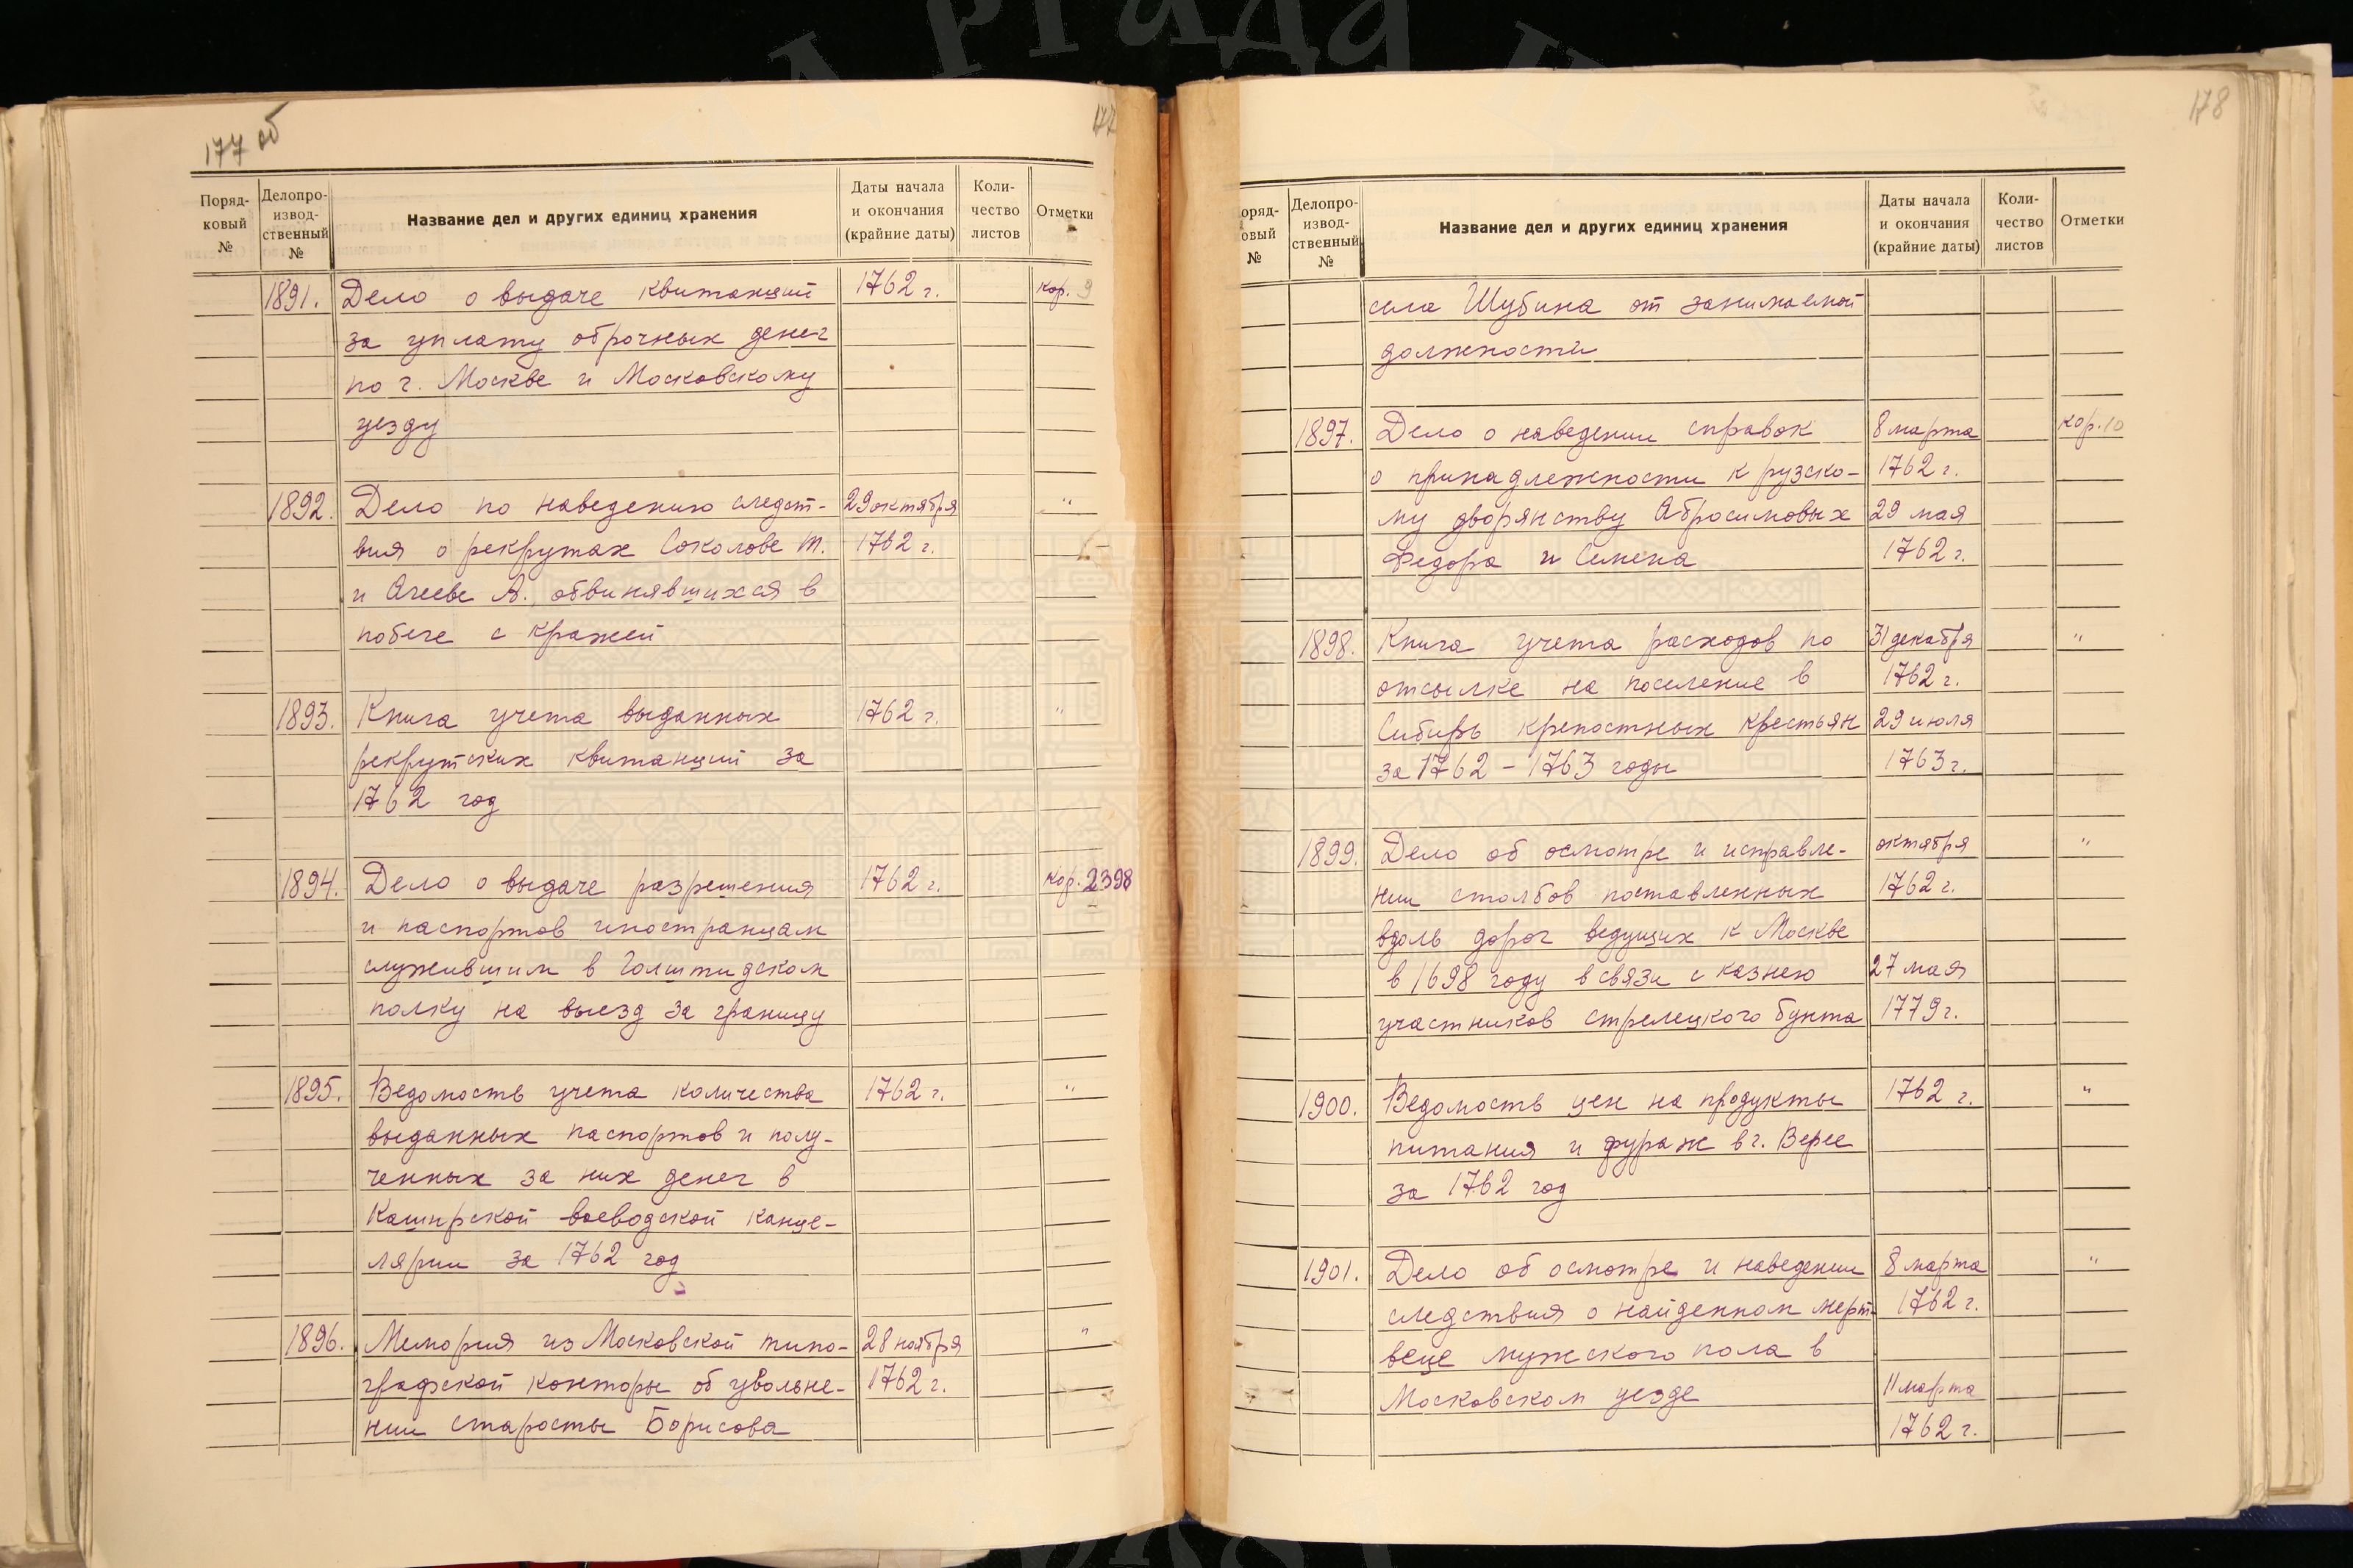 177 об
177
Поряд-
ковый
№
Делопро-
извод-
ственный
№
Название дел и других единиц хранения
Даты начала
и окончания
(крайние даты)
Коли-
чество
листов
Отметки
1891. Дело о выдаче квитанций 1762 г. кор. 9
за уплату оброчных денег
по г. Москве и Московскому
уезду
1892. Дело по наведению следст- 29 октября "
вия о рекрутах Соколове Т. 1762 г.
и Агееве А., обвинявшихся в
побеге с кражей
1893. Книга учета выданных 1762 г. "
рекрутских квитанций за
1762 год
1894. Дело о выдаче разрешения 1762 г. кор. 2398
и паспортов иностранцам
служившим в Голштидском
полку на выезд за границу
1895. Ведомость учета количества 1762 г. "
выданных паспортов и полу-
ченных за них денег в
Каширской воеводской канце-
лярии за 1762 год
1896. Мемория из Московской типо- 28 ноября "
графской конторы об увольне- 1762 г.
нии старосты Борисова
178
оряд-
овый
№
Делопро-
извод-
ственный
№
Название дел и других единиц хранения
Даты начала
и окончания
(крайние даты)
Коли-
чество
листов
Отметки
села Шубина от занимаемой
должности
1897. Дело о наведении справок 8 марта кор. 10
о принадлежности к рузско- 1762 г.
му дворянству Абросимовых 29 мая
Федора и Семена 1762 г.
1898. Книга учета расходов по 31 декабря "
отсылке на поселение в 1762 г.
Сибирь крепостных крестьян 29 июля
за 1762 - 1763 годы 1763 г.
1899. Дело об осмотре и исправле- октября "
нии столбов поставленных 1762 г.
вдоль дорог ведущих к Москве
в 1698 году в связи с казнею 27 мая
участников стрелецкого бунта 1779 г.
1900. Ведомость цен на продукты 1762 г. "
питания и фураж в г. Верее
за 1762 год
1901. Дело об осмотре и наведении 8 марта "
следствия о найденном мерт- 1762 г.
веце мужского пола в
Московском уезде 11 марта
1762 г.